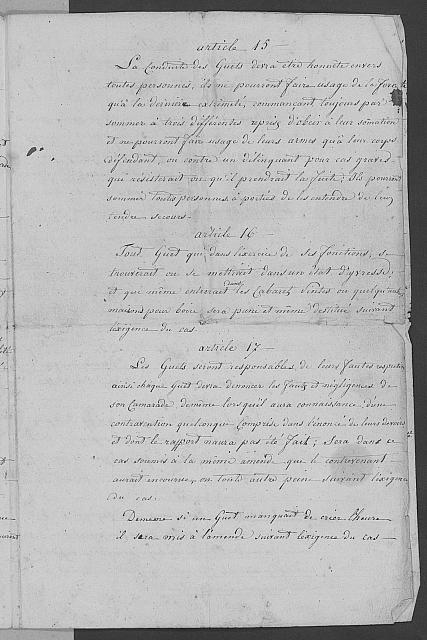 article 15 —
La Conduite des Guets devra etre honnête envers
toutes personnes, ils ne pourront faire usage de la force
qu'à la derniere extrémité, commançant toujours par
sommer à trois differentes reprises d'obeir à leur somation
et ne pourront faire usage de leurs armes qu'à leur corps
défendant, ou contre un délinquant pour cas graves
qui résisterait ou qu'il prendrait la fuite; Ils pourront
sommer toutes personnes à portées de les entendre de leur
tendre secours.
article 16 —
Tout Guet qui dans l'exercice de ses fonctions, se
trouverait ou se mettrait dans un état d'yvresse,
et qui même entrerait les Cabarets Ventes ou quelqu'autre
maison pour boire sera punie et même destitué suivant
l'éxigence du cas.
article 17 —
Les Guets seront responsables de leurs fautes respectives
ainsi chaque Guet devra denoncer les fautes et négligences de
son Camarade, demême lorsqu'il aura connaissance d'une
contravention quelconque comprise dans l'énoncé de leurs devoirs
et dont le rapport n'aura pas été fait; Sera dans ce
cas soumis à la même amende que le contrevenant
aurait encourue, ou toute autre peine suivant l'éxigence
du cas.
Demême si un Guet manquait de crier l'heure
il sera mis à l'amende suivant l'éxigence du cas —